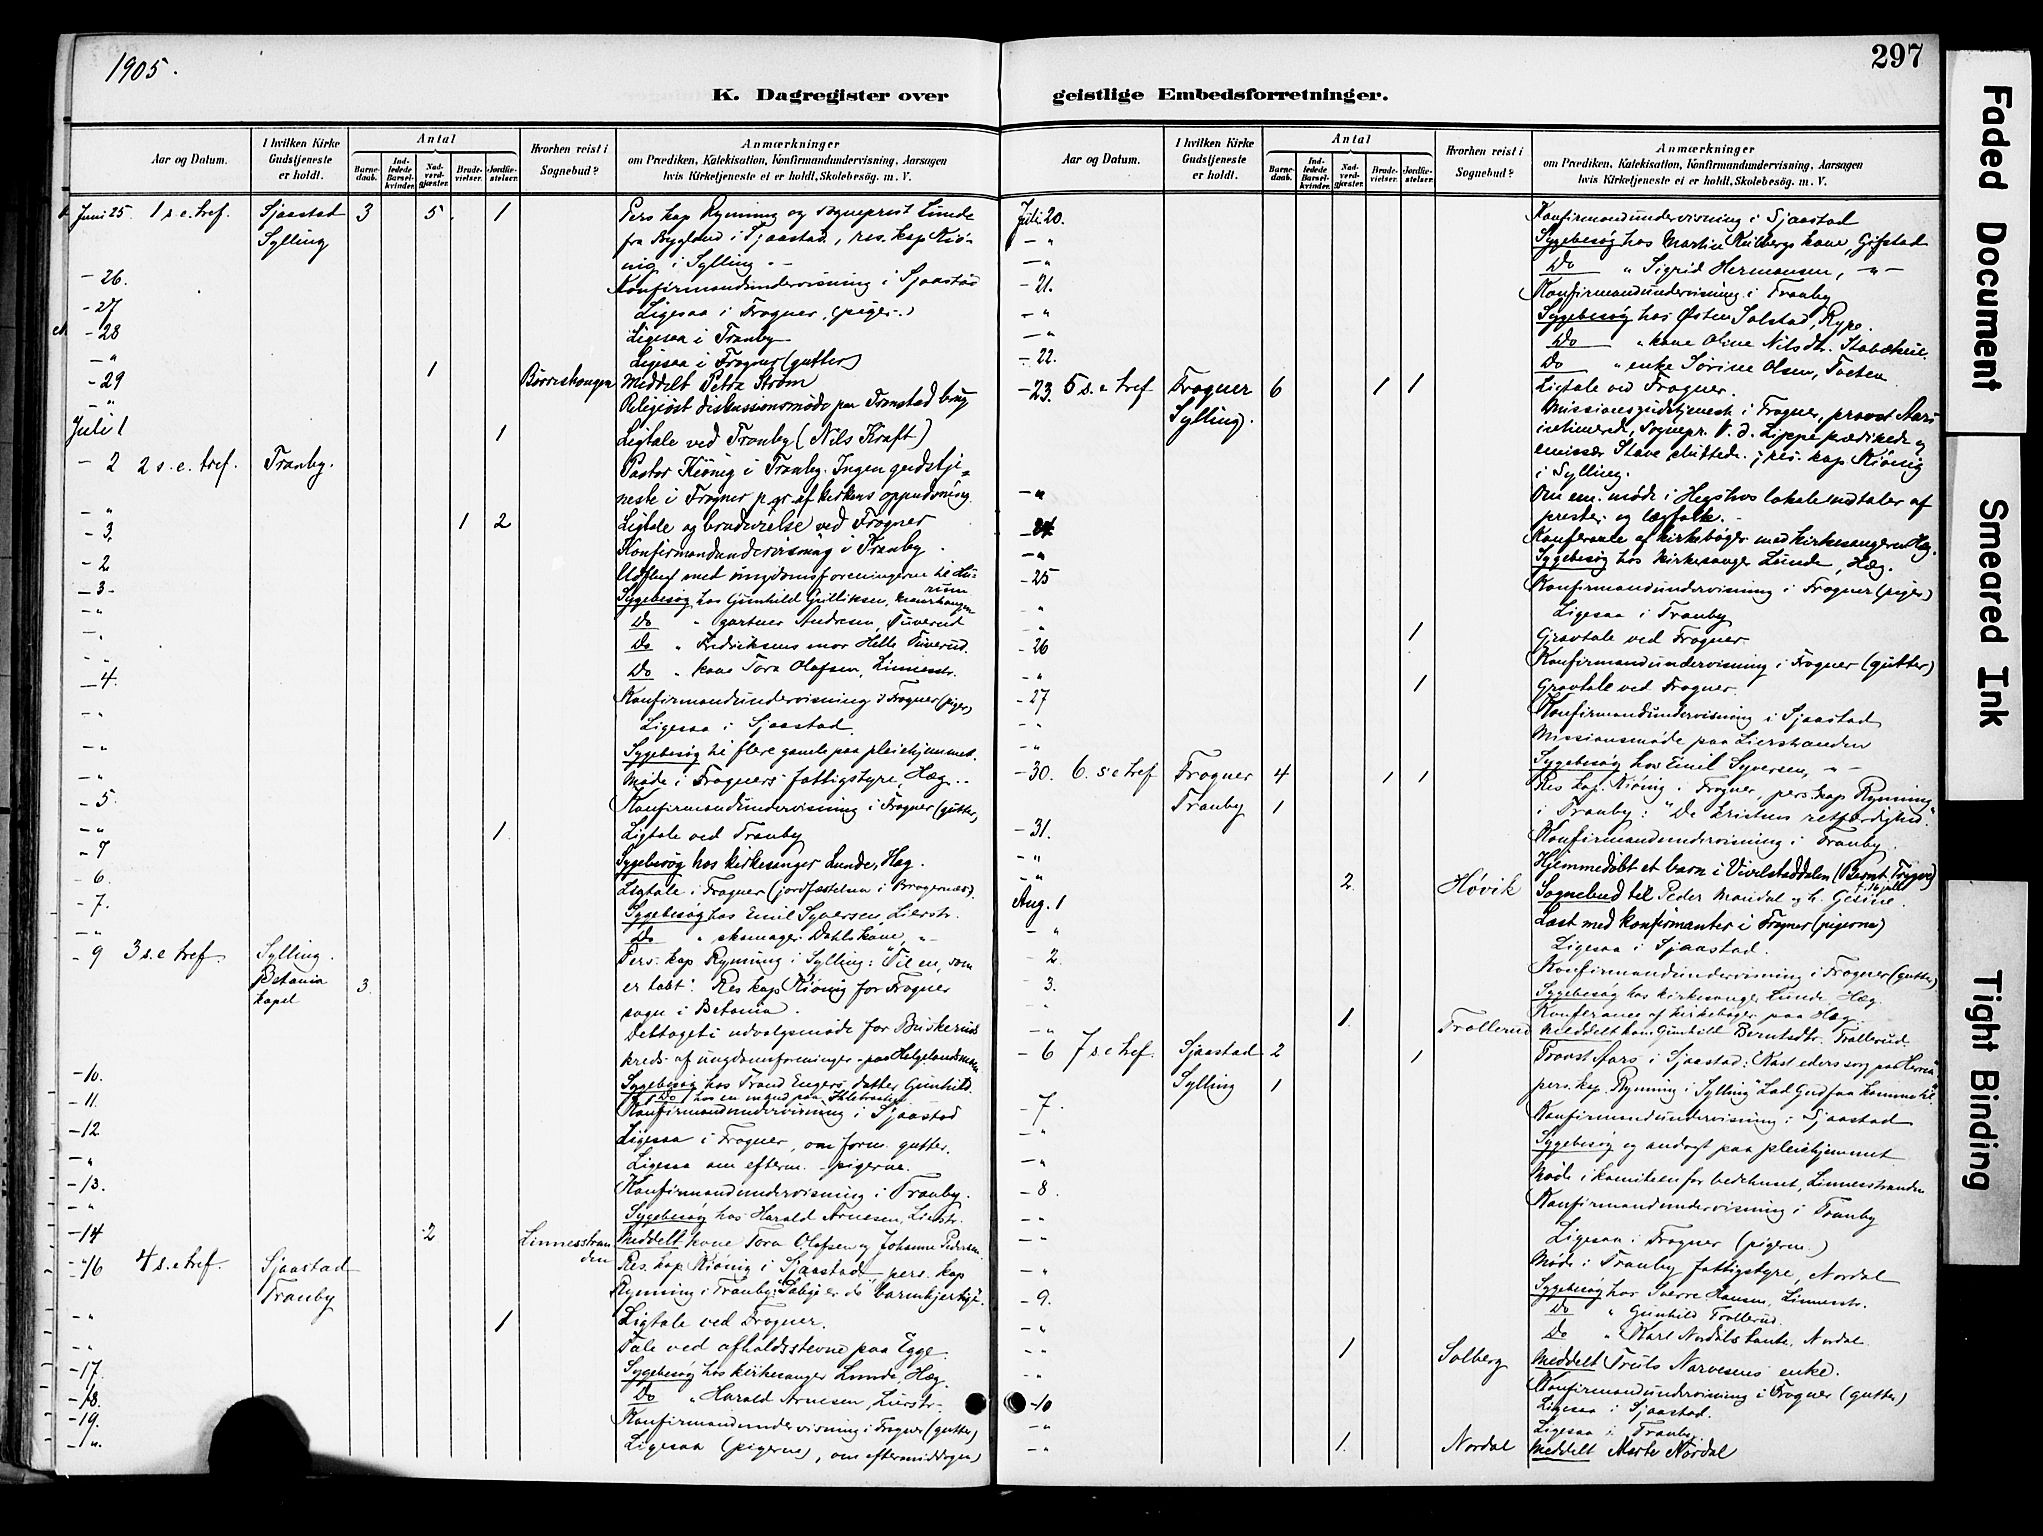 1905.
297
K. Dagregister over geistlige Embedsforretninger.
Aar og Datum.
I hvilken Kirke Gudstjeneste er holdt.
Antal
Barnedaab.
Indledede Barselkvinder.
Nadverdgjæster.
Brudevielser.
Jordfæstelser.
Hvorhen reist i Sognebud?
Anmærkninger
om Prædiken, Katekisation, Konfirmandundervisning, Aarsagen
hvis Kirketjeneste ei er holdt, Skolebesøg. m. V.
Juni 25 1 s. e. tref. Sjaastad 3 5 1 Pers. kap Rynning og sogneprest Lunde
Sylling fra Bygland i Sjaastad, res. kap Kiønig i Sylling
- 26. Konfirmandundervisning i Sjaastad
- 27 Ligesaa i Frogner (piger)
- 28 Ligesaa i Tranby
- " Ligesaa i Frogner (gutter)
- 29 1 Meddelt Petra Strøm
- " Religiøst diskussionsmøde paa Tronstad brug
Juli 1 1 Ligtale ved Tranby (Nils Kraft)
- 2 2 s. e. tref. Tranby. Pastor Kiønig i Tranby. Ingen gudstjeneste
i Frogner p. gr. af kirkens oppudsning
- " 1 2 Ligtale og brudevielse ved Frogner
- 3. Konfirmandundervisning i Tranby.
- 2 Udflugt med ungdomsforeningerne til
- 3 - Sygebesøg hos Gunhild Gulliksen,
- " Do " gartner Andresen, Tuverud
- " Do " Fredriksens mor Helle Tuverud.
- " Do " kone Tora Olafsen, Linnesstr.
- 4. Konfirmandundervisning i Frogner (piger)
- " Ligesaa i Sjaastad.
- " Sygebesøg til flere gamle paa pleiehjemmet.
- " Møde i Frogners fattigstyre, Hæg.
- 5. Konfirmandundervisning i Frogner (gutter)
- " 1 Ligtale ved Tranby
- 7 Sygebesøg hos kirkesanger Lunde, Hæg.
- 6. Ligtale i Frogner (jordfæstelsen i Bragernæs).
- 7. Sygebesøg hos Emil Syversen Lierstr.
- " Do " Dahls kone "
- 9 3 s. e. tref. Sylling. Pers. kap Rynning i Sylling: "Til en, som
Betania kapel 3. er tabt". Res kap Kiønig for Frogner
sogn i Betania.
Deltaget i udvalgsmøde for Buskeruds
kreds af ungdomsforeninger paa
- 10. Sygebesøg hos Trand Engers datter Gunhild.
- 11. Konfirmandundervisning i Sjaastad
- 12 Ligesaa i Frogner, om form. gutter.
- " Ligesaa om efterm. - pigerne.
- 13. Konfirmandundervisning i Tranby.
- " Sygebesøg hos Harald Arnesen, Lierstr.
- 14 2 Linnesstranden Meddelt kone Tora Olafsen og Johanne Pedersen.
- 16 4 s. e. tref. Sjaastad Res. kap Kiønig i Sjaastad, pers. kap
Tranby Rynning i Tranby: "Salige er de barmhjertige".
- " 1 Ligtale ved Frogner.
- " Tale ved afholdsstevne paa Egge.
- 17. Sygebesøg hos kirkesanger Lunde, Hæg.
- 18. Do " Harald Arnesen, Lierstr.
- 19. Konfirmandundervisning i Frogner (gutter)
- " Ligesaa (pigerne), om eftermiddagen)
Juli 20. Konfirmandundervisning i Sjaastad
- " Sygebesøg hos Martin Kulbergs kone, Gifstad
- " Do " Sigrid Hermansen, - " -
- 21. Konfirmandundervisning i Tranby
- " Sygebesøg hos Østen Solstad, Rype.
- " Do " kone Oline Nilsdtr.
- 22. Do " enke Sørine Olsen,
- 23. 5 s. e tref Frogner 6 1 1 Ligtale ved Frogner.
Sylling. Missionsgudstjeneste i Frogner, provst
intimerede, Sognepr. v. d. Lippe prædikede og
emissær Stave sluttede. ; res. kap Kiønig
i Sylling.
- " Om em. møde i Hegshus lokale m/taler af
prester og lægfolk.
- 24 Konferanse af kirkebøger med kirkesangeren Hæg.
- " Sygebesøg hos kirkesanger Lunde, Hæg.
- 25 Konfirmandundervisning i Frogner (piger)
- " Ligesaa i Tranby
- " 1 Gravtale ved Frogner
- 26 Konfirmandundervisning i Frogner (gutter)
- " 1 Gravtale ved Frogner.
- 27 Konfirmandundervisning i Sjaastad
- " Missionsmøde paa Lierstranden
- " Sygebesøg hos Emil Syversen, - " -
- 30. 6. s. e tref Frogner 4 1 1 Res. kap. Kiønig i Frogner, pers. kap Rynning
Tranby 1 i Tranby: "De kristnes retfærdighed".
- 31. Konfirmandundervisning i Tranby.
- " Hjemmedøbt et barn i Vivelstaddalen (Bernt Trygve) f. 16 juli
- " 2. Høvik Sognebud til Peder Mandal og h. Gesine.
Aug. 1 Læst med konfirmanter i Frogner (pigerne)
- " Ligesaa i Sjaastad.
- 2. Konfirmandundervisning i Frogner (gutter)
- 3. Sygebesøg hos kirkesanger Lunde, Hæg.
- " Konferanse af kirkebøger paa Hæg
- " 1. Trollerud Meddelt kone Gunhild Berntsdtr. Trollerud
- 6 7 s. e tref. Sjaastad 2 1 Provst Aars i Sjaastad: "Kast eders sorg paa Herren"
Sylling 1 pers. kap. Rynning i Sylling "Lad Gud faa komme til"
- 7. Konfirmandundervisning i Sjaastad
- " Sygebesøg og andagt paa pleiehjemmet
- " Møde i komiteen for bedehuset, Linnesstranden
- 8. Konfirmandundervisning i Tranby
- " Ligesaa i Frogner (pigerne.)
- " Møde i Tranby fattigstyre, Nordal
- " Sygebesøg hos Sverre Hansen, Linnesstr.
- 9. Do " Gunhild Trollerud.
- " Do " Karl Nordals tante, Nordal
- " 1 Solberg Meddelt Truls Narvesens enke.
- " Konfirmandundervisning i Frogner (gutter)
- 10 Ligesaa i Sjaastad.
- " Ligesaa i Tranby.
- " 1. Nordal Meddelt Marte Nordal
Faded Document
Smeared Ink
Tight Binding